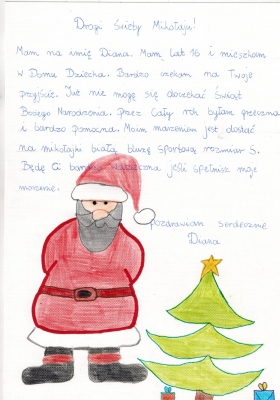 Drogi Święty Mikołaju!
Mam na imię Diana. Mam lat 16 i mieszkam
w Domu Dziecka. Bardzo czekam na Twoje
przyjście. Już nie mogę się doczekać Świąt
Bożego Narodzenia. Przez cały rok byłam grzeczna
i bardzo pomocna. Moim marzeniem jest dostać
na mikołajki białą bluzę sportową rozmiar S.
Będę Ci bardzo wdzięczna jeśli spełnisz moje
marzenie.
pozdrawiam serdecznie
Diana